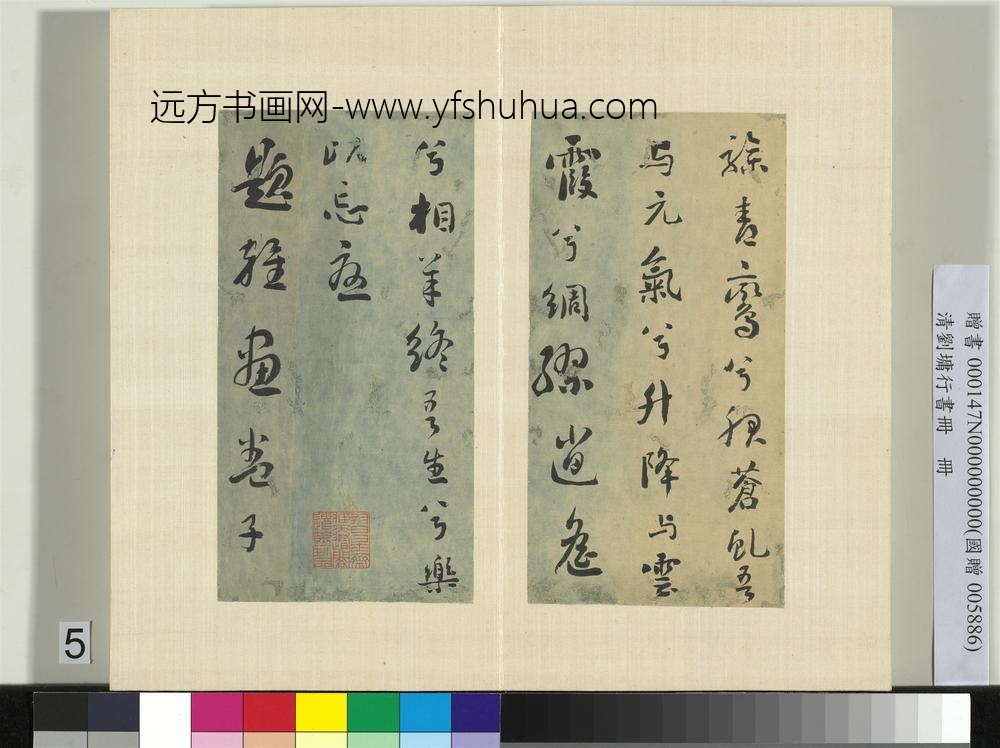 远方书画网-www.yfshuhua.com
驂青鸞兮服蒼虬吾
与元氣兮升降与雲
霞兮綢繆逍遙
兮相羊終吾生兮樂
此忘
題雜畫卷子
贈書 000147N000000000(國贈 005886)
清劉墉行書冊 冊
5